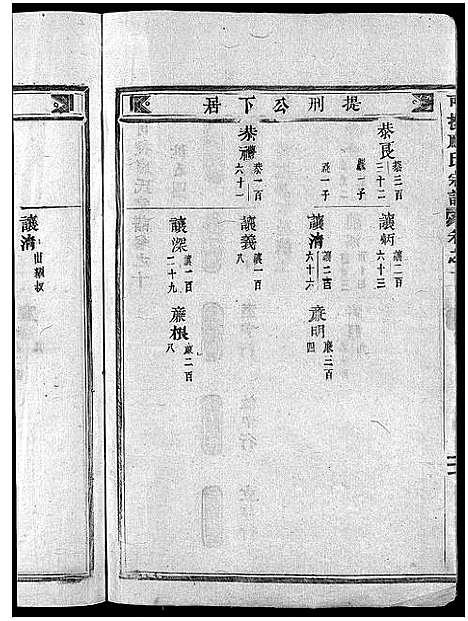 提刑公下居
恭良 恭三百三十二
廉一子
讓一子
恭禮 恭一百六十一
讓炳 讓二百六十三
讓清 讓二百六十六
讓義 讓一百八
讓深 讓一百二十九
廉明 廉三百四
廉根 廉二百八
讓清 出繼叔
氏宗譜